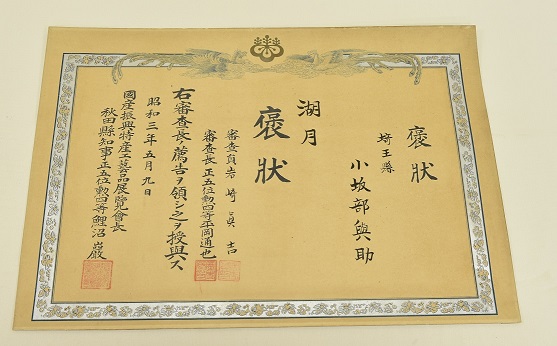 褒狀
埼玉縣
小坂部與助
湖月
褒狀
審查員岩崎眞吉
審查長正五位勳四等平岡通也
右審查長ノ薦告ヲ領シ之ヲ授與ス
昭和三年五月九日
國產振興特產工藝品展覽會長
秋田縣知事正五位勳四等鯉沼巖